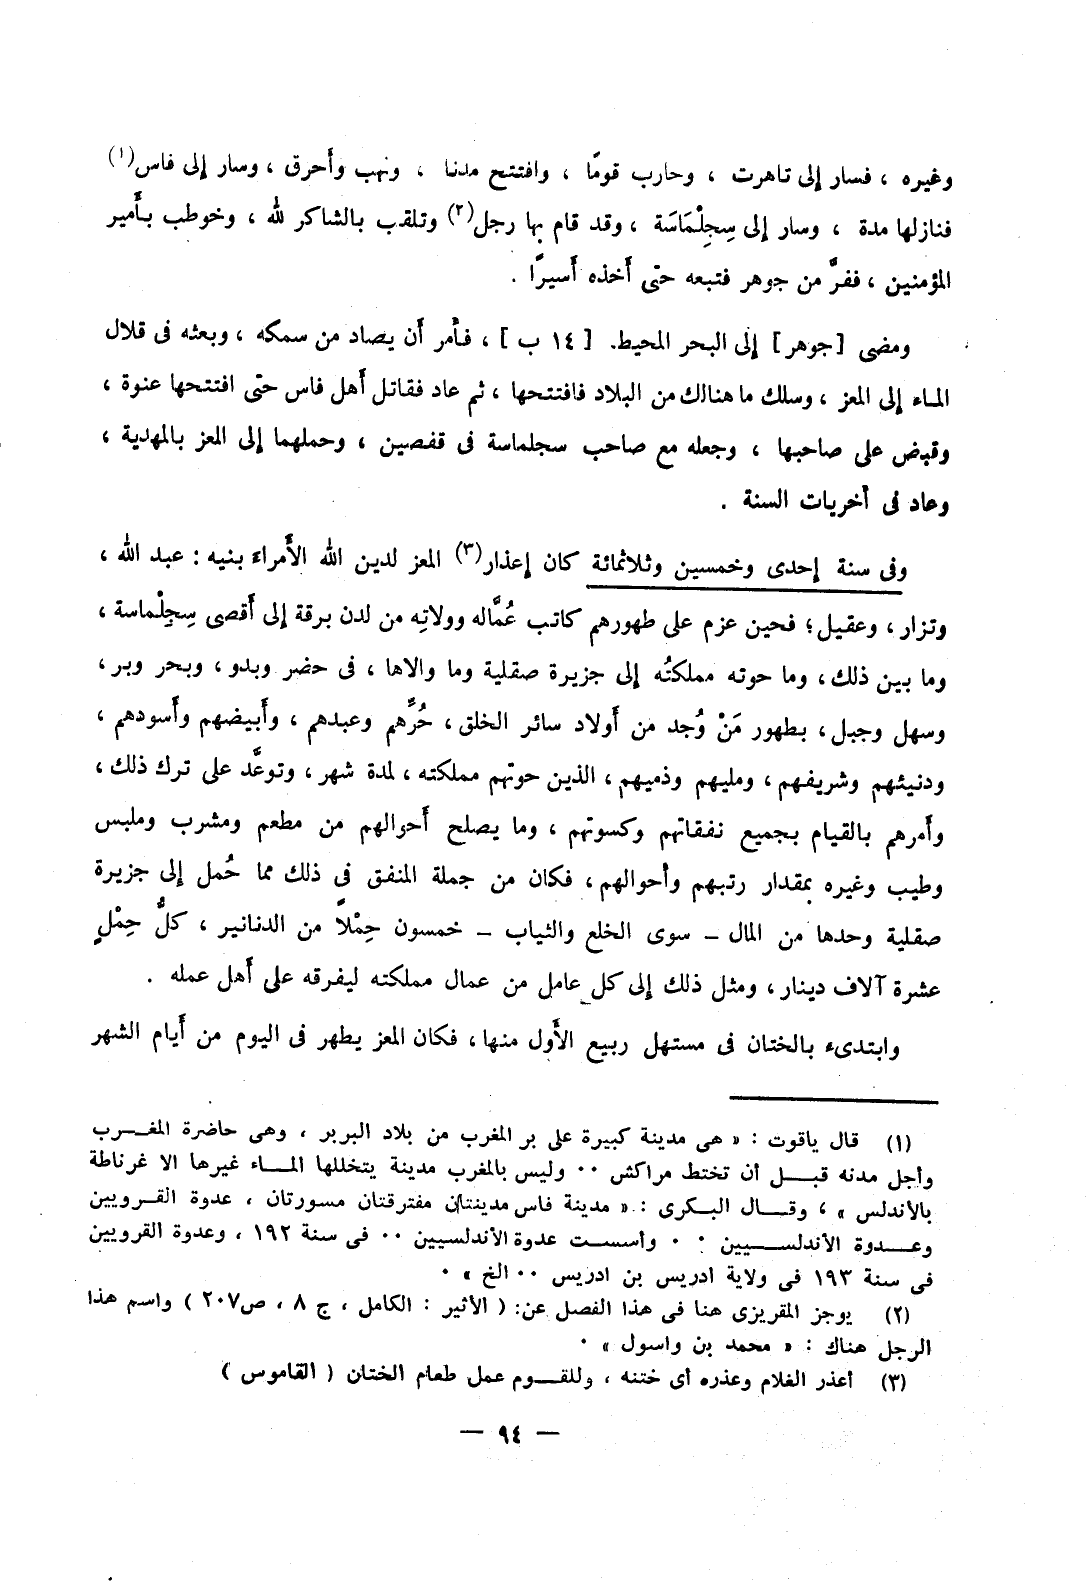 وغيره ، فسار إلى تاهرت ، وحارب قومًا ، وافتتح مدنا ، ونهب وأحرق ، وسار إلى فاس(١)
فنازلها مدة ، وسار إلى سِجِلْمَاسَة ، وقد قام بها رجل(٢) وتلقب بالشاكر لله ، وخوطب بأَمير
المؤمنين ، ففرَّ من جوهر فتبعه حتى أَخذه أَسيرًا .
ومضى [جوهر] إلى البحر المحيط. [ ١٤ ب ] ، فأَمر أَن يصاد من سمكه ، وبعثه فى قلال
الماء إلى المعز ، وسلك ما هنالك من البلاد فافتتحها ، ثم عاد فقاتل أَهل فاس حتى افتتحها عنوة ،
وقبض على صاحبها ، وجعله مع صاحب سجلماسة فى قفصين ، وحملهما إلى المعز بالمهدية ،
وعاد فى أخريات السنة .
وفى سنة إحدى وخمسين وثلاثمائة كان إعذار(٣) المعز لدين الله الأُمراء بنيه : عبد الله ،
ونزار ، وعقيل؛ فحين عزم على طهورهم كاتب عُمَّاله وولاتِه من لدن برقة إلى أَقصى سِجِلْماسة ،
وما بين ذلك ، وما حوته مملكتُه إلى جزيرة صقلية وما والاها ، فى حضر وبدو ، وبحر وبر ،
وسهل وجبل ، بطهور مَنْ وُجد من أَولاد سائر الخلق ، حُرِّهم وعبدهم ، وأَبيضهم وأَسودهم ،
ودنيئهم وشريفهم ، ومليهم وذميهم ، الذين حوتهم مملكته ، لمدة شهر ، وتوعَّد على ترك ذلك ،
وأَمرهم بالقيام بجميع نفقاتهم وكسوتهم ، وما يصلح أَحوالهم من مطعم ومشرب وملبس
وطيب وغيره بمقدار رتبهم وأَحوالهم ، فكان من جملة المنفق فى ذلك مما حُمل إلى جزيرة
صقلية وحدها من المال – سوى الخلع والثياب – خمسون حِمْلاً من الدنانير ، كلُّ حِمْلٍ
عشرة آلاف دينار ، ومثل ذلك إلى كل عامل من عمال مملكته ليفرقه على أَهل عمله .
وابتدىء بالختان فى مستهل ربيع الأَول منها ، فكان المعز يطهر فى اليوم من أَيام الشهر
(١) قال ياقوت : « هى مدينة كبيرة على بر المغرب من بلاد البربر ، وهى حاضرة المغرب
وأجل مدنه قبل أن تختط مراكش ٠٠ وليس بالمغرب مدينة يتخللها الماء غيرها الا غرناطة
بالأندلس » ، وقال البكرى : « مدينة فاس مدينتان مفترقتان مسورتان ، عدوة القرويين
وعدوة الأندلسيين ٠ ٠ وأسست عدوة الأندلسيين ٠٠ فى سنة ١٩٢ ، وعدوة القرويين
فى سنة ١٩٣ فى ولاية ادريس بن ادريس ٠٠ الخ » ٠
(٢) يوجز المقريزى هنا فى هذا الفصل عن: ( الأثير : الكامل ، ج ٨ ، ص٢٠٧ ) واسم هذا
الرجل هناك : « محمد بن واسول » ٠
(٣) أعذر الغلام وعذره أى ختنه ، وللقوم عمل طعام الختان ( القاموس )
— ٩٤ —